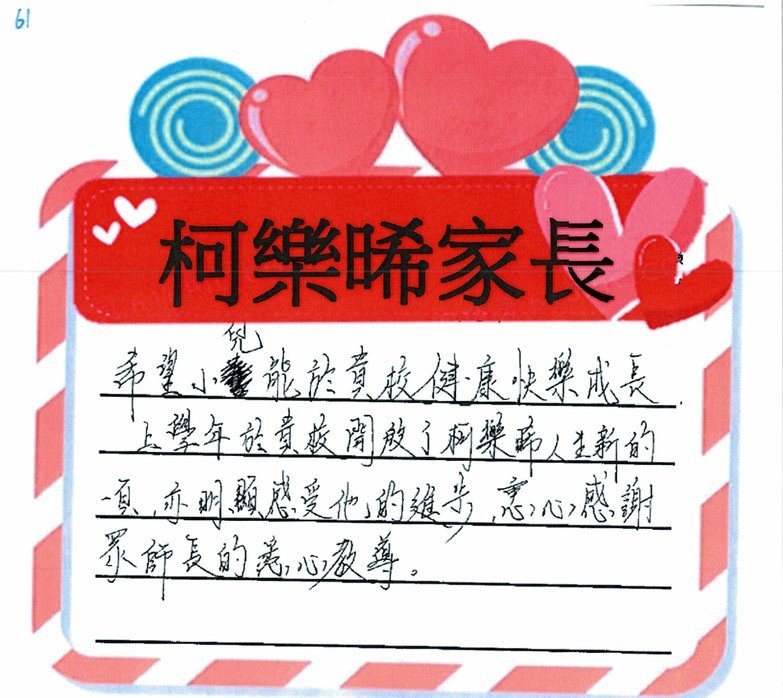 61
柯樂晞家長
希望小兒能於貴校健康快樂成長.
上學年於貴校開啟了柯樂晞人生新的
一頁,亦明顯感受他的進步,衷心感謝
眾師長的悉心教導。